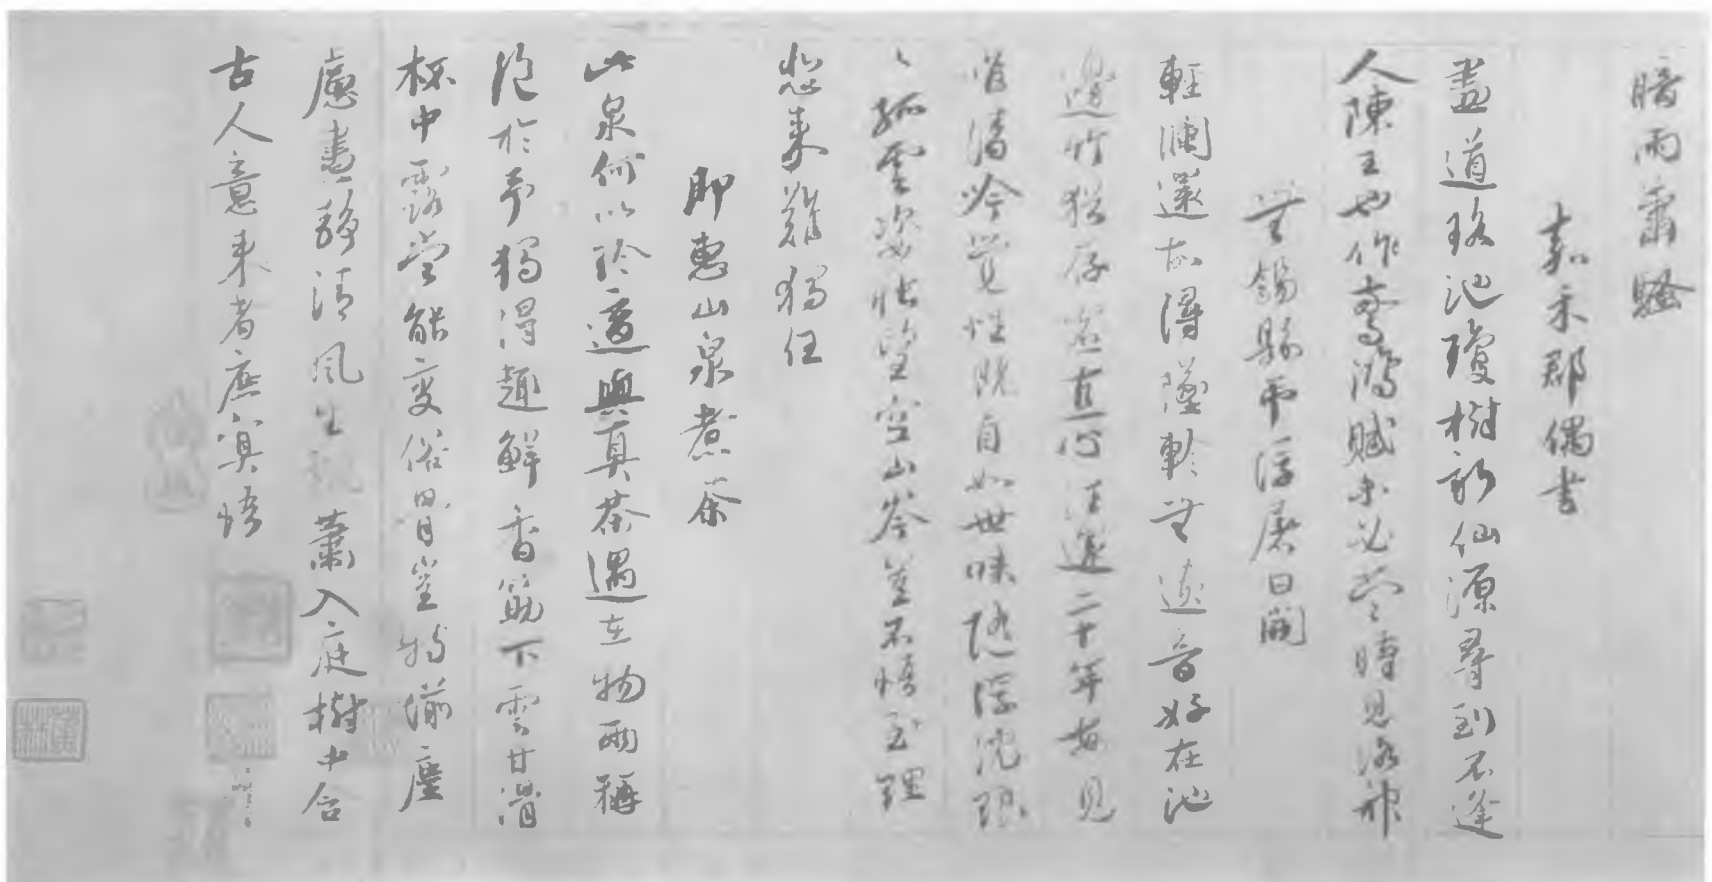 暗雨蕭騷
嘉禾郡偶書
盡道瑤池瓊樹新仙源尋到不逢
人陳王也作驚鴻賦未必當時見洛神
無錫縣弔浮屠日開
輕瀾還故潯墜軫無遺音好在池
邊竹猶存虛直心往還二十年每見
清吟覺性既自如世味隨浮沈琅
々孤雲姿悵望空山岑豈不悟至理
悲來難獨任
即惠山泉煮茶
此泉何以珍適與真茶遇在物兩稱
絕於予獨得趣鮮香筯下雲甘滑
杯中露當能變俗骨豈特湔塵
慮晝靜清風生飄蕭入庭樹中含
古人意來者庶冥悟